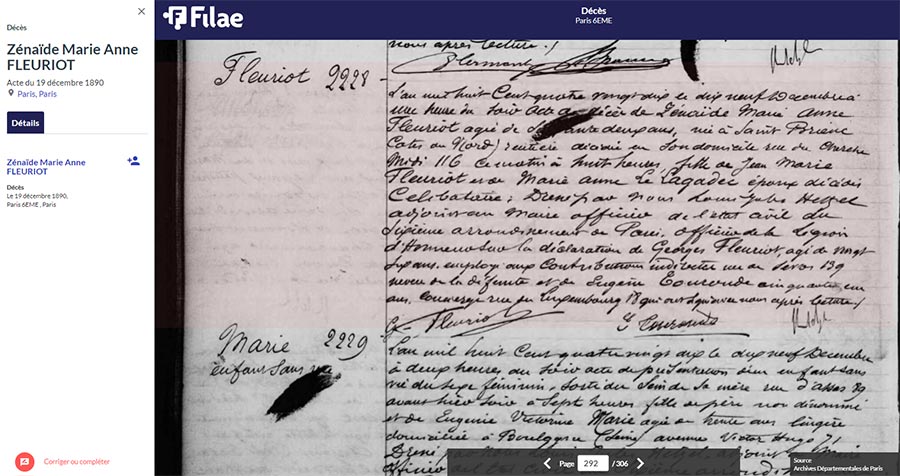 Décès
Zénaïde Marie Anne
FLEURIOT
Acte du 19 décembre 1890
Paris, Paris
Détails
Zénaïde Marie Anne
FLEURIOT
Décès
Le 19 décembre 1890,
Paris 6EME , Paris
Corriger ou compléter
Filae
Décès
Paris 6EME
nous après lecture /.
Fleuriot 2228
L'an mil huit Cent quatre vingt dix le dix neuf Décembre à
une heure du soir acte de décès de Zénaïde Marie Anne
Fleuriot agée de ante deux ans, née à Saint Brieuc
(Côtes du Nord) rentière décédée en son domicile rue du Cherche
Midi 116 Ce matin à huit heures, fille de Jean Marie
Fleuriot et de Marie anne Le Lagadec époux décédés
Celibataire ; Dressé par nous Louis Jules Hetzel
adjoint au Maire officier de l'état civil du
sixième arrondissement de Paris, officier de la Légion
d'Honneur sur la déclaration de Georges Fleuriot, agé de vingt
six ans, employé aux Contributions indirectes rue de Sèvres 139
neveu de la défunte et de Eugène cinquante un
ans, Concierge rue du Luxembourg 18 qui ont signé avec nous après lecture /.
G. Fleuriot
Marie 2229
enfant sans vie
L'an mil huit Cent quatre vingt dix le dix neuf Décembre
à deux heures du soir acte de présentation d'un enfant sans
vie du sexe féminin, sorti du sein de sa mère rue d'assas 89
avant hier soir à Sept heures fille de père non dénommé
et de Eugénie Victorine Marie agée de trente ans lingère
domiciliée à Boulogne (Seine) avenue Victor Hugo 7 /
Dressé par
officier
Page 292 / 306
Source
Archives Départementales de Paris